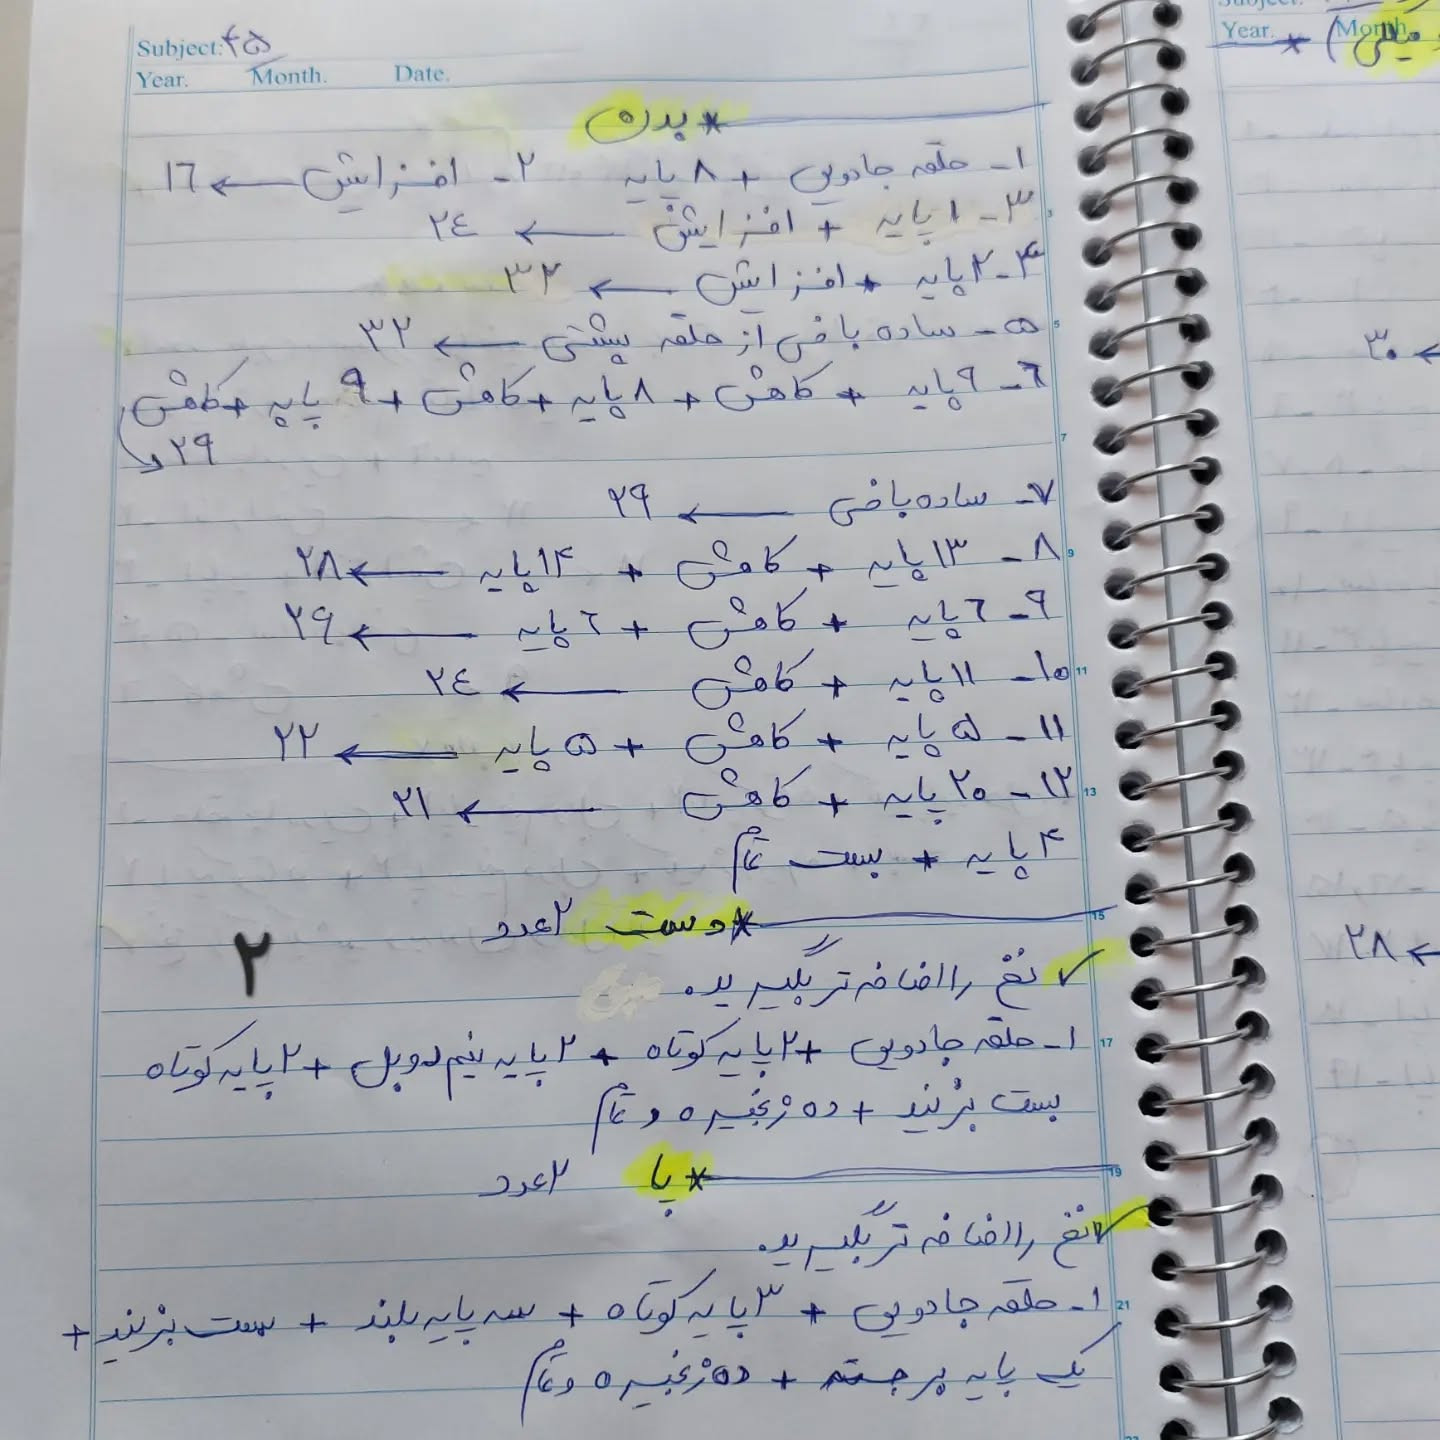 Subject: ۴۵
Year. Month. Date.
* بدن
۱- حلقه جادویی + ۸ پایه ۲- افزایش ← ۱٦
۳- ۱ پایه + افزایش ← ۲٤
۴- ۲ پایه + افزایش ← ۳۲
۵- ساده بافی از حلقه پشتی ← ۳۲
٦- ۹ پایه + کاهش + ۸ پایه + کاهش + ۹ پایه + کاهش
۲۹
۷- ساده بافی ← ۲۹
۸- ۱۳ پایه + کاهش + ۱۴ پایه ← ۲۸
۹- ٦ پایه + کاهش + ٦ پایه ← ۲۹
۱۰- ۱۱ پایه + کاهش ← ۲٤
۱۱- ۵ پایه + کاهش + ۵ پایه ← ۲۲
۱۲- ۲۰ پایه + کاهش ← ۲۱
۴ پایه + بست تمام
* دست ۲ عدد
✓ نخ را اضافه تر بگیرید.
۲
۱- حلقه جادویی + ۲ پایه کوتاه + ۲ پایه نیم دوبل + ۲ پایه کوتاه
بست بزنید + ده زنجیره و تمام
* پا ۲ عدد
✓ نخ را اضافه تر بگیرید.
۱- حلقه جادویی + ۳ پایه کوتاه + سه پایه بلند + بست بزنید +
یک پایه برجسته + ده زنجیره و تمام
Subject:
Year. Month.
۳۰ ←
۲۸ ←